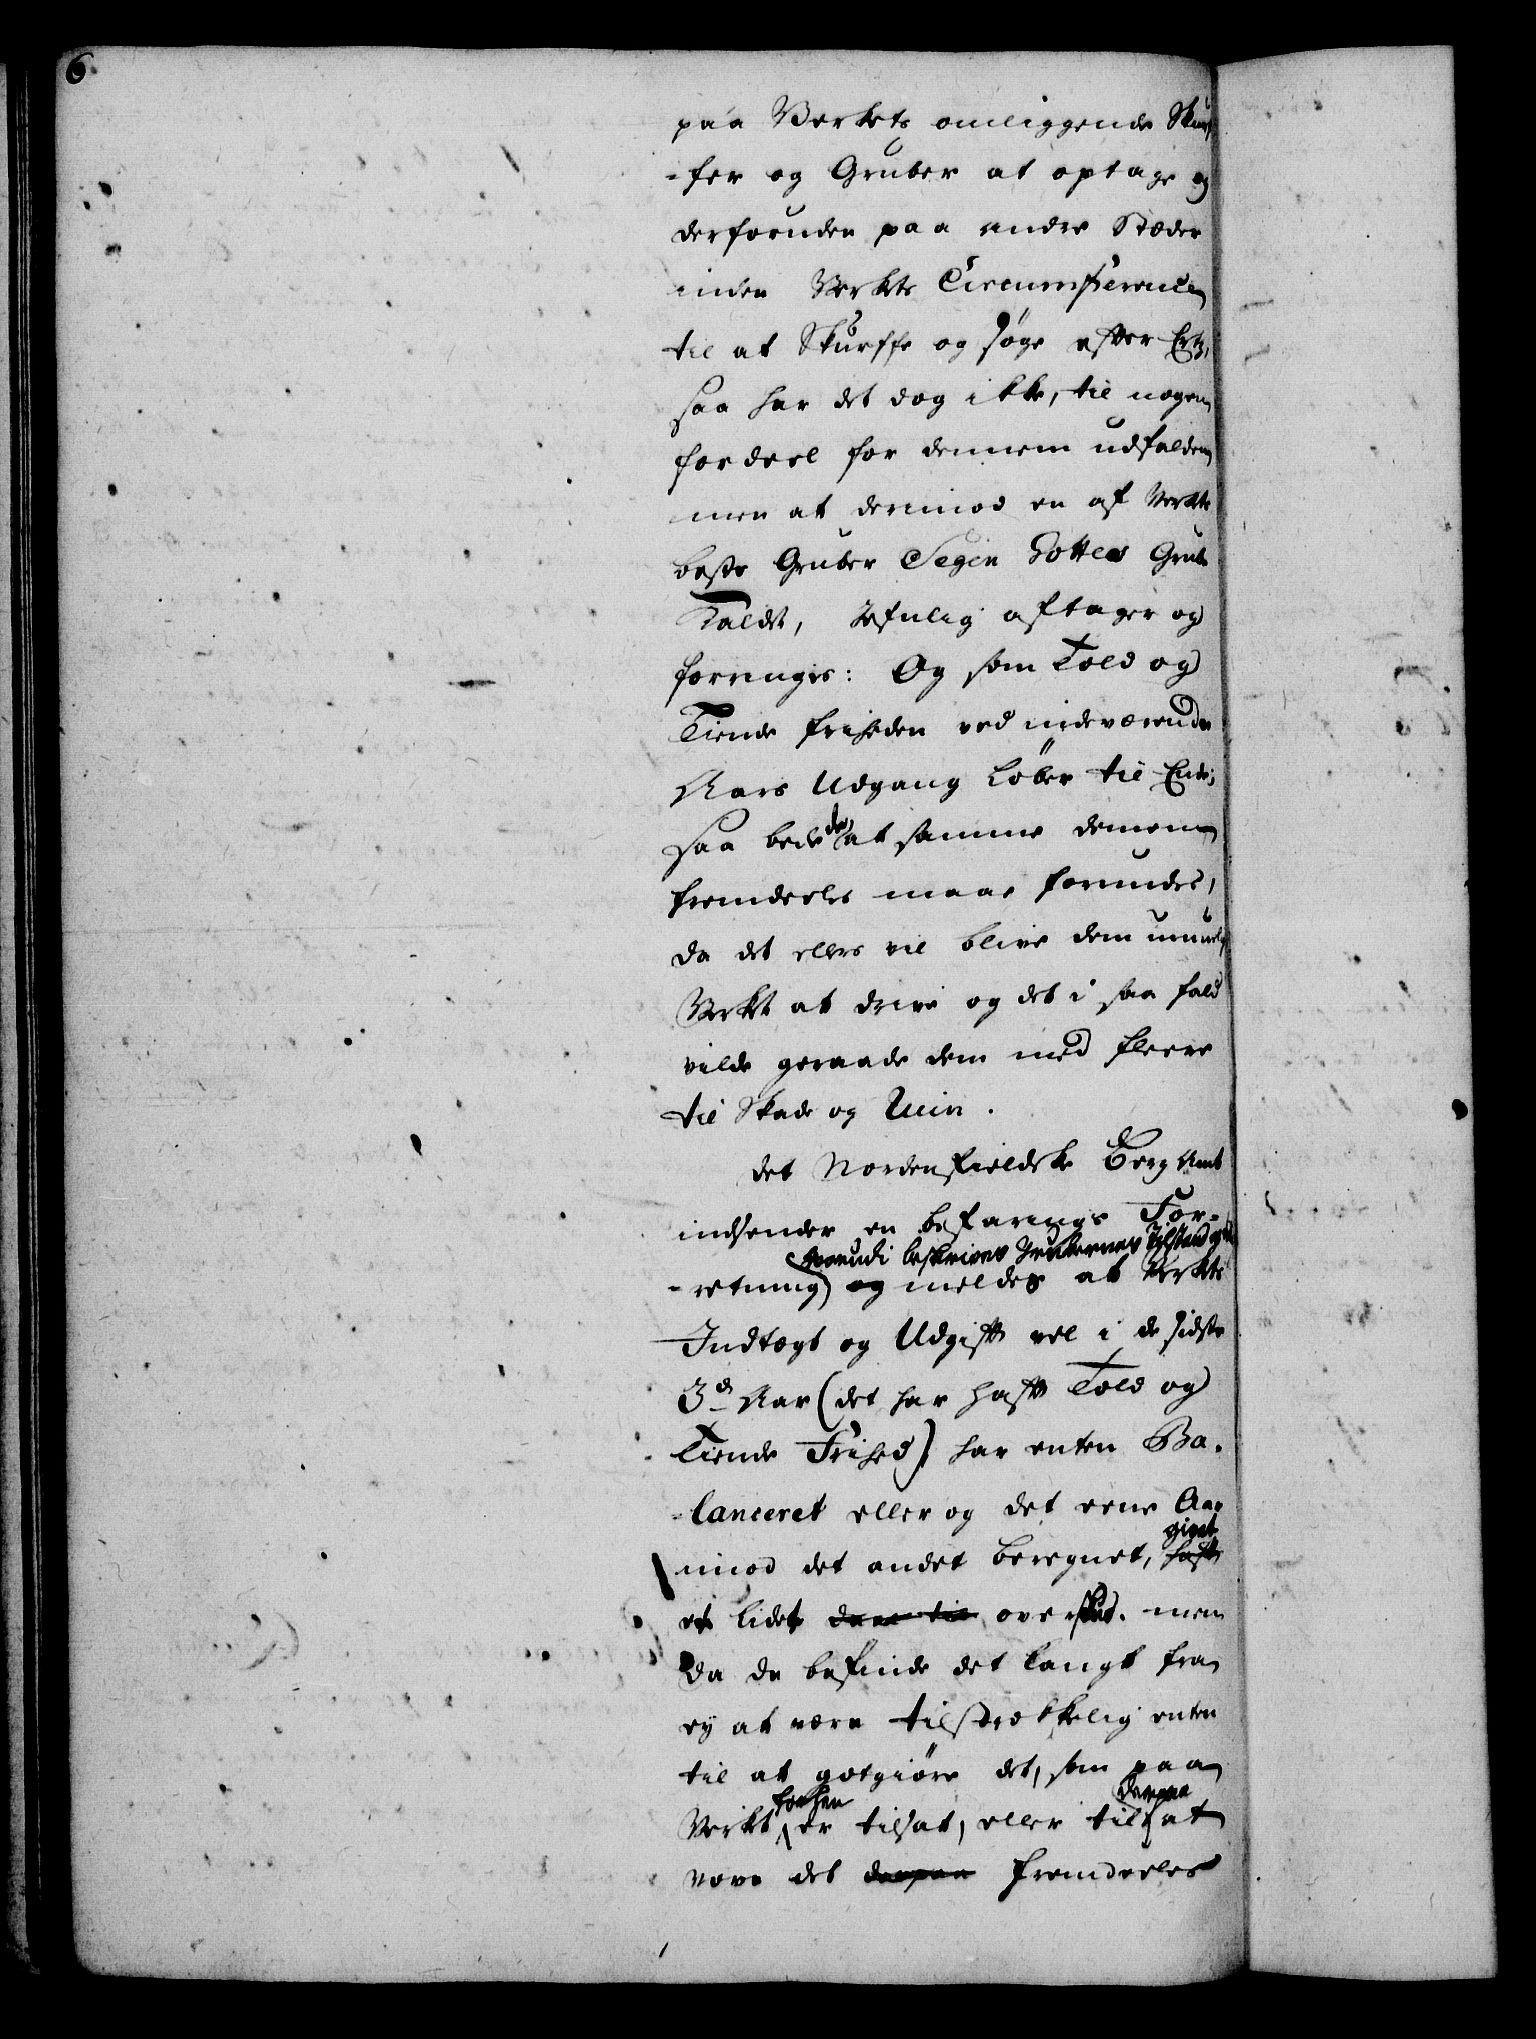 6
paa Verkets omliggende Skur-
-fer og Gruber at optage og
derforuden paa andre Stæder
inden Verkets Circumference
til at Skurffe og søge efter Ertz,
saa har det dog ikke, til nogen
fordeel for dennem udfalden
men at derimod en af Verkets
beste Gruber Segen Gottes Grube
Kaldet, Jefnlig aftager og
forringes: Og som Told og
Tiende friheden ved indeværende
Aars Udgang Løber til Ende;
saa bede de at samme dennem
fremdeeles maae forundes,
da det ellers vil blive dem umuelig
Verket at drive og det i saa fald
vilde geraade dem med fleere
til Skade og Ruin.
det Nordenfieldske Berg Amt
indsender en befarings For-
hvorudi beskrives Grubernes Tilstand og
-retning og meldes at Verkets
Indtægt og Udgift vel i de sidste
3de Aar (det har haft Told og
Tiende Frihed) har enten Ba-
-lanceret eller og det eene Aar
givet
imod det andet beregnet, haft
et lidet overskud. men
da de befinde det langt fra
ey at være tilstrekkelig enten
til at godtgiøre det, som paa
forhen derpaa
Verket er tilsat, eller til at
vove det derpaa fremdeeles